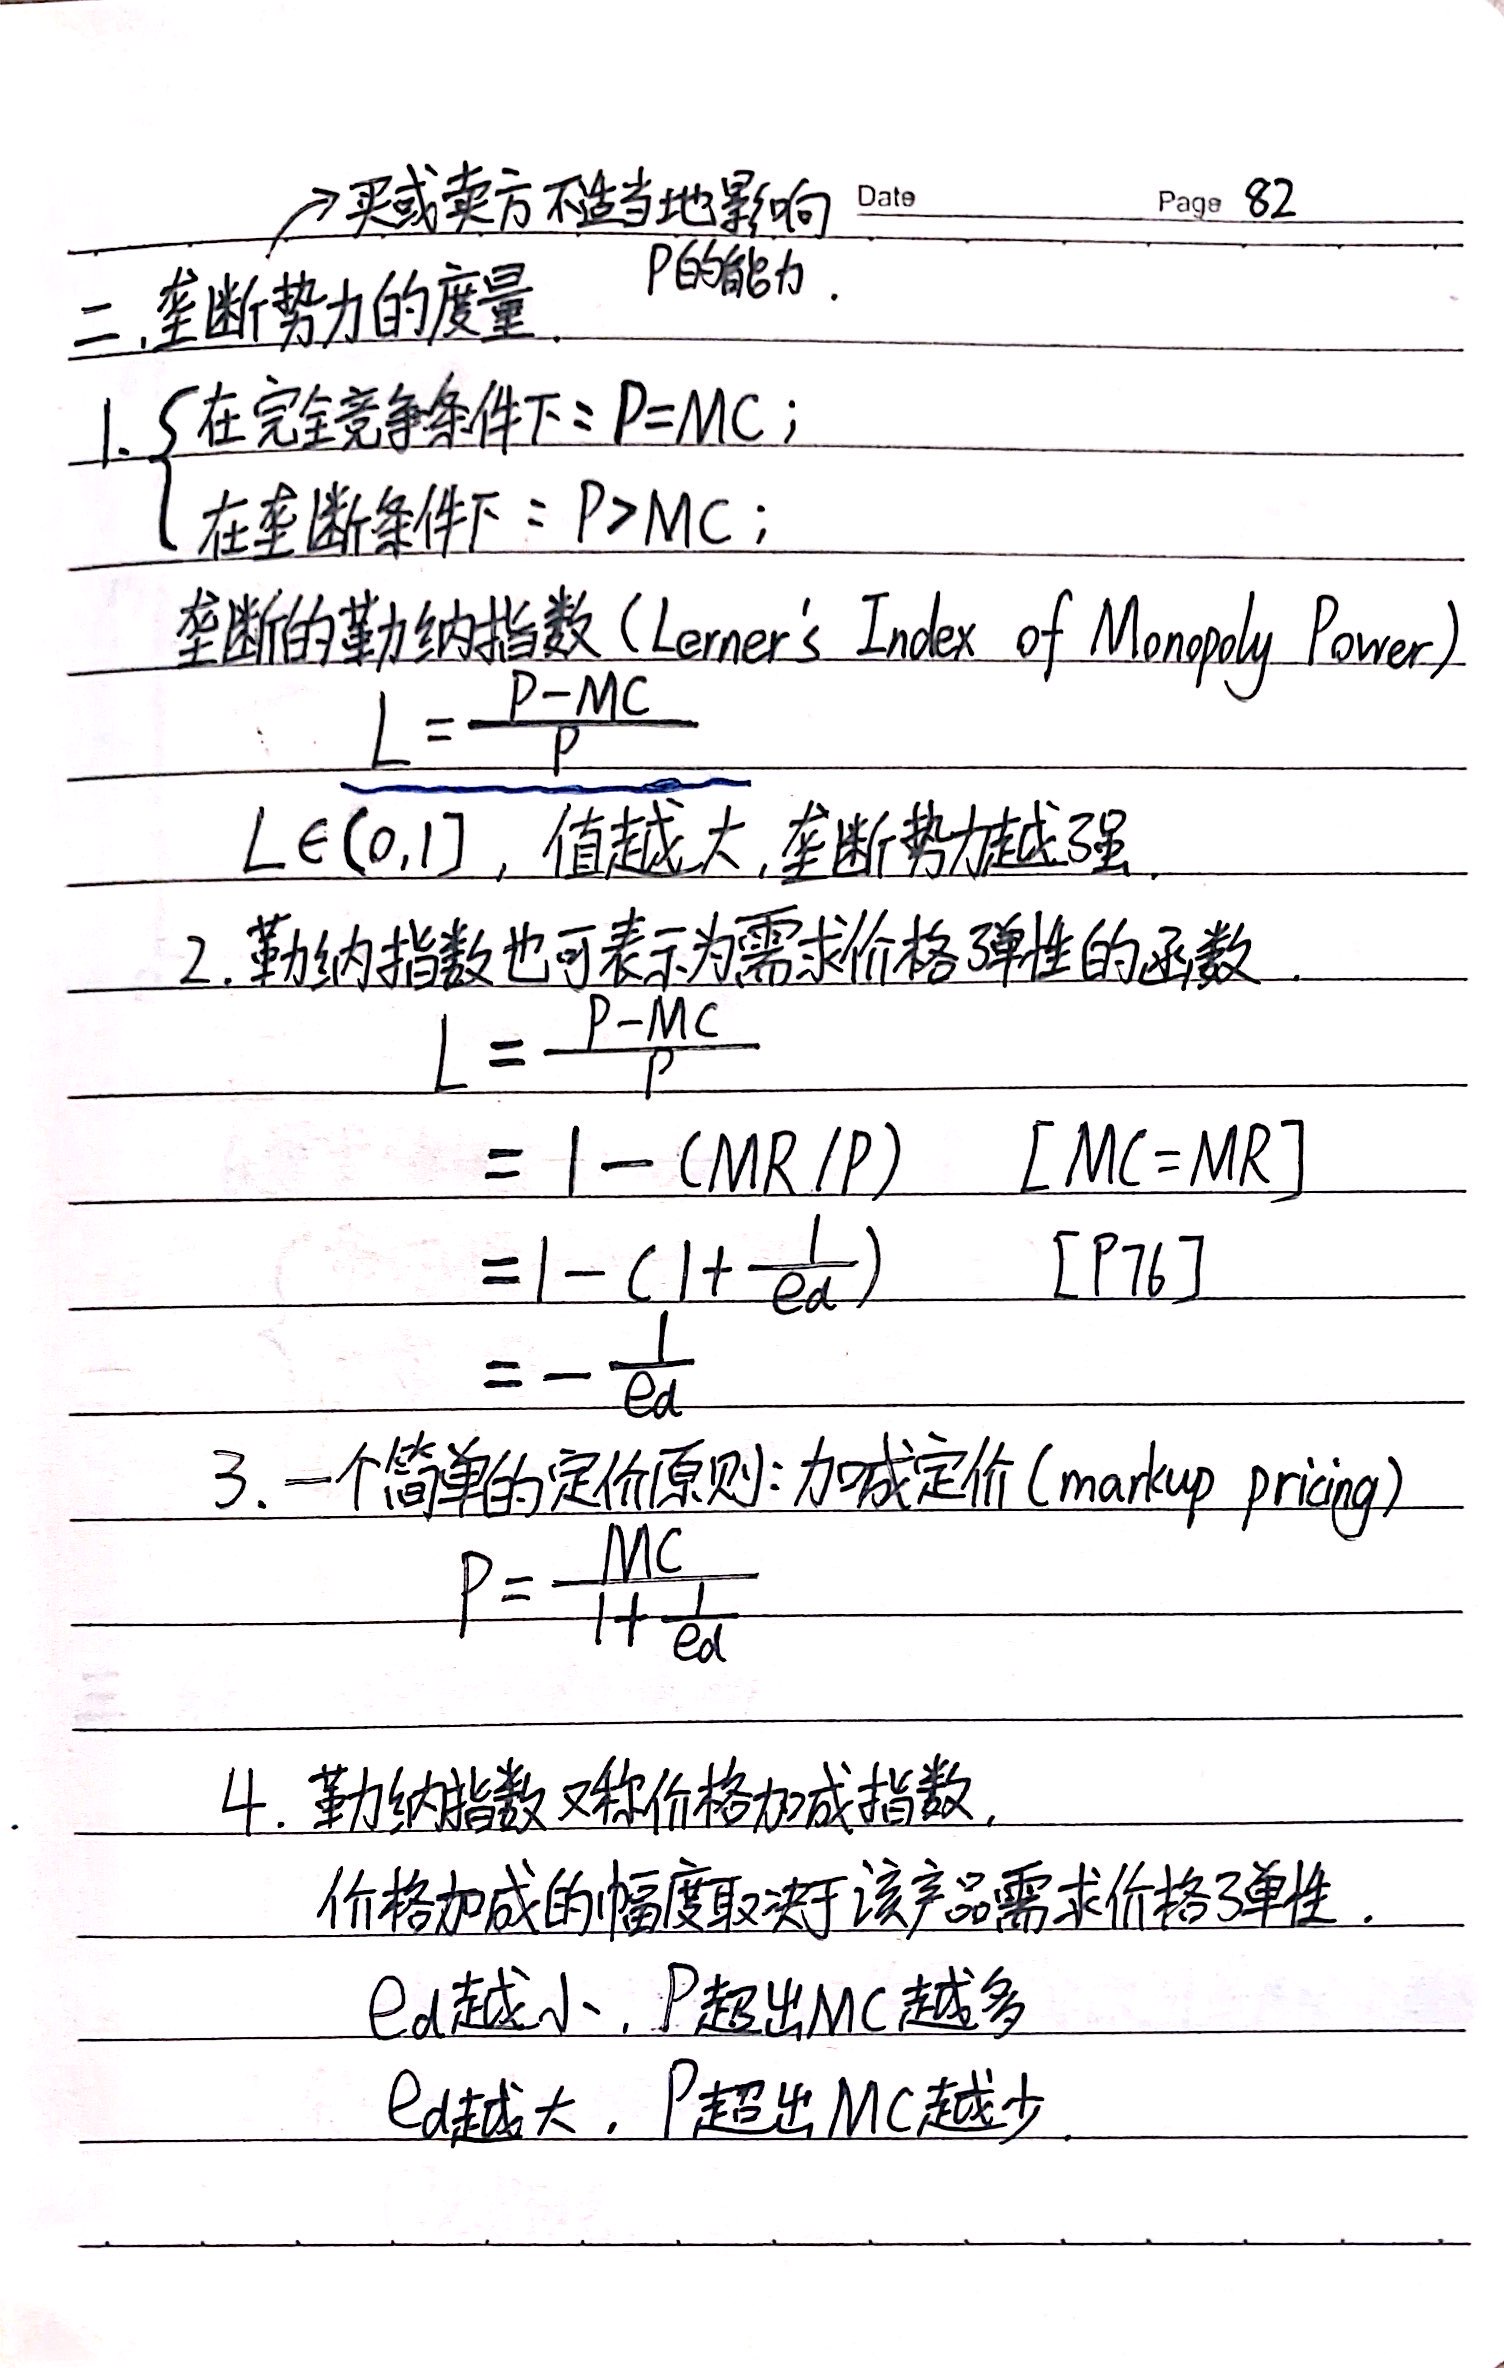 →买或卖方不适当地影响 Date Page 82
P的能力.
二.垄断势力的度量.
1. { 在完全竞争条件下: P=MC;
在垄断条件下: P>MC;
垄断的勒纳指数(Lerner's Index of Monopoly Power)
L = \frac{P-MC}{P}
L∈(0,1], 值越大,垄断势力越强.
2. 勒纳指数也可表示为需求价格弹性的函数.
L = \frac{P-MC}{P}
= 1-(MR/P) [MC=MR]
= 1-(1+\frac{1}{ed}) [P76]
= -\frac{1}{ed}
3. 一个简单的定价原则: 加成定价(markup pricing)
P = \frac{MC}{1+\frac{1}{ed}}
4. 勒纳指数又称价格加成指数,
价格加成的幅度取决于该产品需求价格弹性.
ed越小, P超出MC越多
ed越大, P超出MC越少.